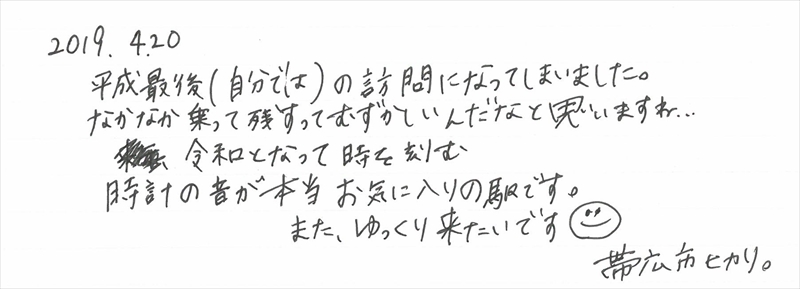 2019. 4.20
平成最後(自分では)の訪問になってしまいました。
なかなか乗って残すってむずかしいんだなと思いますね…
令和となって時を刻む
時計の音が本当お気に入りの駅です。
また、ゆっくり来たいです
帯広市ヒカリ。